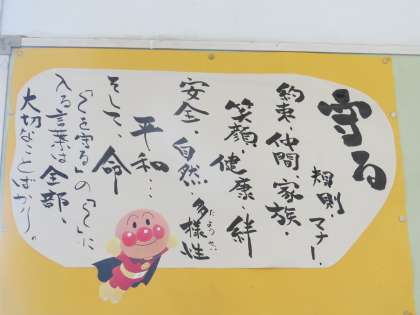 守る
規則・マナー・
約束・仲間・家族・
笑顔・健康・絆
安全・自然・多様性
たようせい
平和…
そして、命
「〜を守る」の「〜」に
入る言葉は全部、
大切なことばかり。